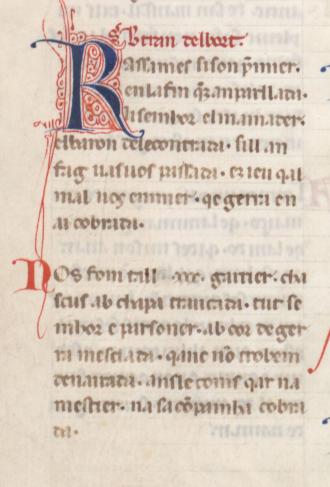 Bertran delbort.
Rassames sison pimier.
en lafin qar anparillada.
Aisemhor el mainader.
elbaron delecontrada. sill an
fag uas uos passada. ez ieu qal
mal uos enmier. qe gerra en
ai cobrada.
Nos fom tall .xxx. gaurier. cha
scus ab chapa traucada. tut se
mhor e parsoner. ab cor de ger
ra mesclada. qanc nō trobem
denairada. ansle coms qar na
mestier. na sa cōpainha cobra
da.